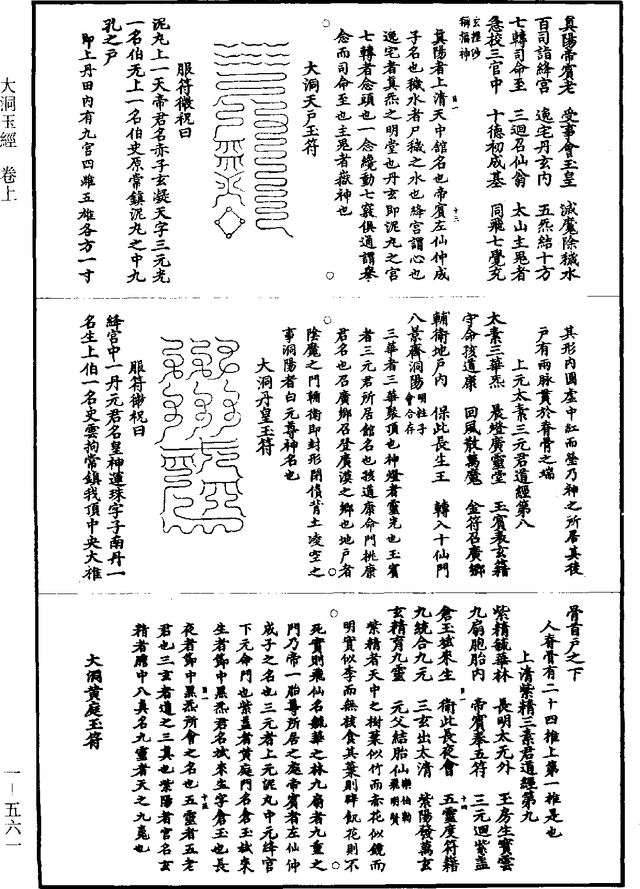 真陽帝賓老　受事會玉皇　滅魔除穢水
百司詣絳宮　逸宅丹玄內　五炁結十方
七轉司命至　三迴召仙翁　太山主冤者
急校三官中　十德初成基　同飛七覺充
稱福神
真陽者上清天中館名也帝賓左仙仲成
子名也穢水者尸穢之水也絳宮謂心也
逸宅者真炁之明堂也丹玄即泥丸之宮
七轉者念頭也一念纔動七竅俱通謂舉
念而司命至也主冤者嶽神也
大洞天戶玉符
服符微祝曰
泥丸上一天帝君名赤子玄凝天字三元光
一名伯无上一名伯史原常鎮泥丸之中九
孔之戶
即上丹田內有九宮四雌五雄各方一寸
其形內圓虛中紅而瑩乃神之所居其後
戶有兩脉貫於脊骨之端
上元太素三元君道經第八
太素三華炁　晨燈廣靈堂　玉賓表玄籍
守命孩道康　回風散萬魔　金符召廣鄉
輔衛地戶內　保此長生王　轉入十仙門
八景齊洞陽　會合存
三華者三華聚頂也神燈者靈光也玉賓
者三元君所居館名也孩道康命門桃康
君名也召廣鄉召登廣漠之鄉也地戶者
陰魔之門輔衛即封形閉債背土凌空之
事洞陽者白元尊神名也
大洞丹皇玉符
服符微祝曰
絳宮中一丹元君名皇神運珠字子南丹一
名生上伯一名史雲拘常鎮我項中央大椎
骨首戶之下
人脊骨有二十四椎上第一椎是也
上清紫精三素君道經第九
紫精毓華林　長明太元外　玉房生寶雲
九扇胞胎內　帝賓奉五符　三元迴紫蓋
倉玉娀來生　衛此長夜會　五靈度符籍
九統合九元　三玄出太清　紫陽發萬玄
玄精育九靈　元父結胎仙
紫精者天中之樹葉似竹而赤花似鏡而
明實似李而無核食其葉則不飢花則不
死實則飛仙名毓華之林九扇者九重之
門乃帝一胎尊所居之庭帝賓者左仙仲
成子之名也三元者上元泥丸中元絳宮
下元命門也紫蓋者黃庭門名倉玉娀來
生者節中黑炁君名娀來生字倉玉也長
夜者節中黑炁所會之名也五靈者五老
君也三玄者道之三真也紫陽者宮名玄
精者臍中八真名九靈者天之九嵬也
大洞黄庭玉符
大洞玉經　卷上
一—五六一